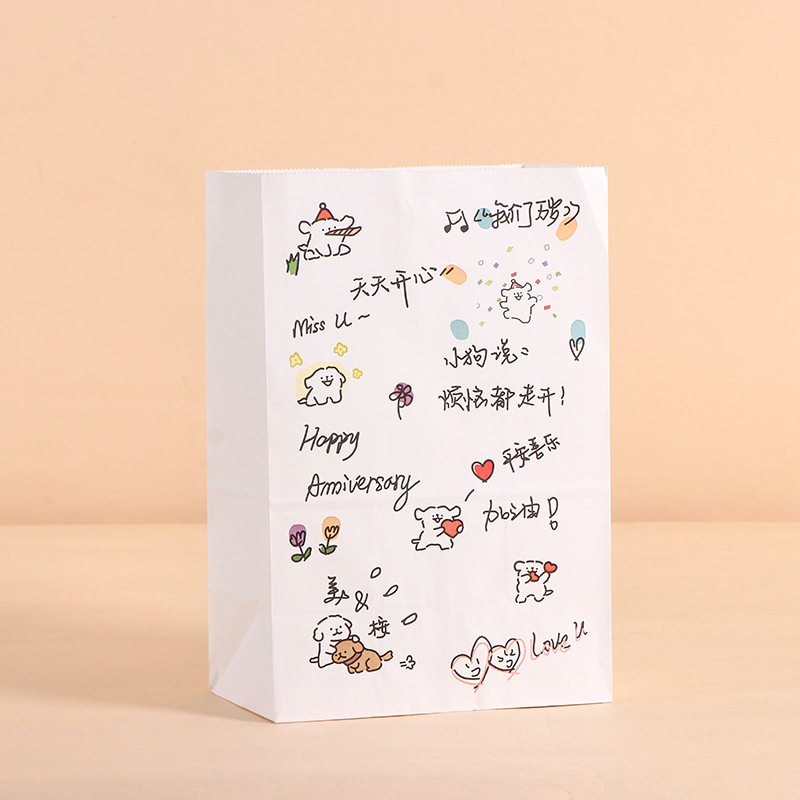 《我们万岁》
天天开心
Miss U ~
小狗说:
烦恼都走开!
Happy
Anniversary
平安喜乐
加油!
美&
桉
Love U